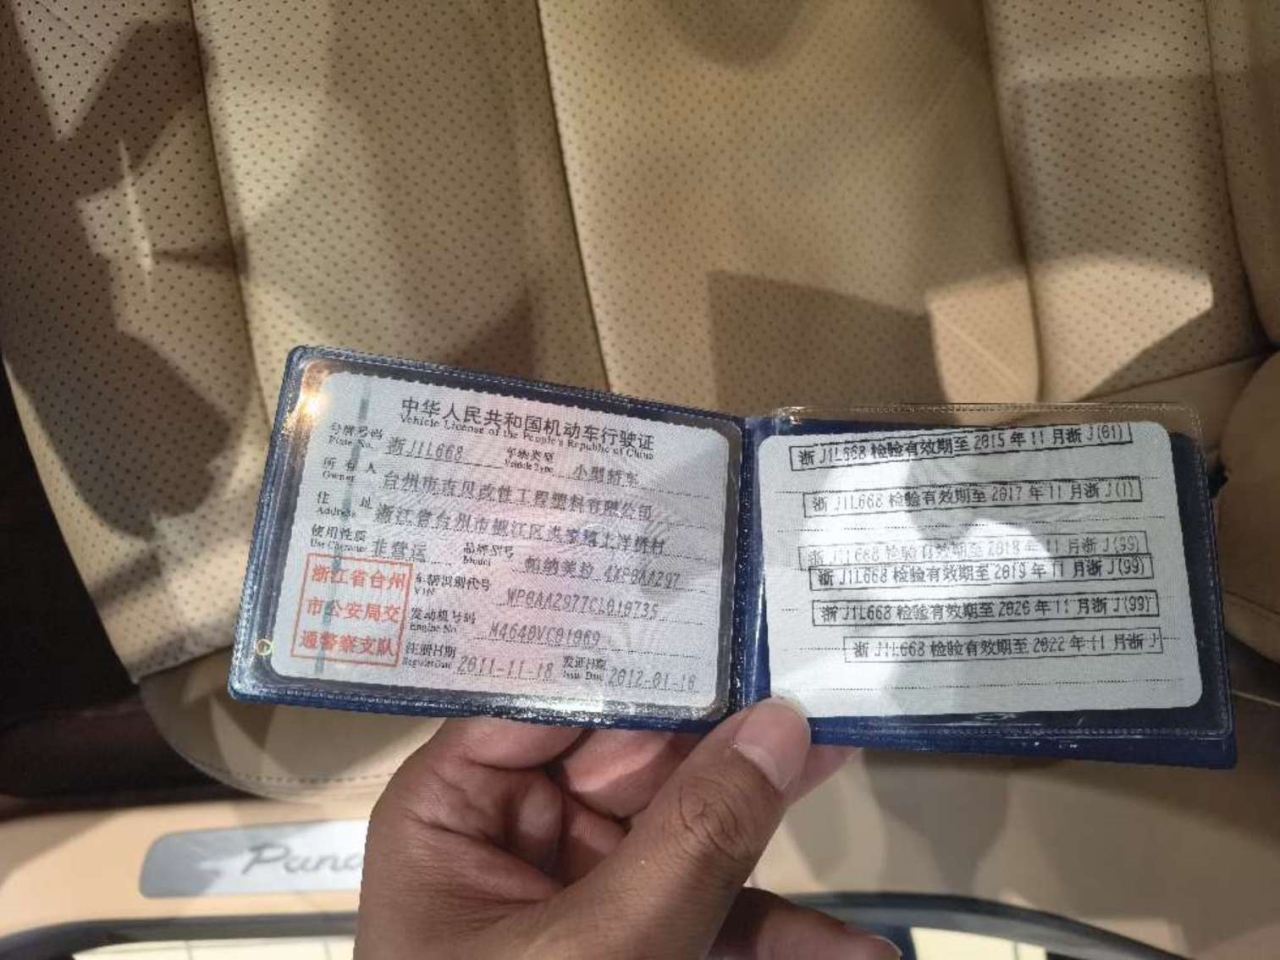 中华人民共和国机动车行驶证
Vehicle License of the People's Republic of China
号牌号码 浙J1L668 车辆类型 小型轿车
Plate No. Vehicle Type
所有人 台州市吉贝改性工程塑料有限公司
Owner
住址 浙江省台州市椒江区洪家 上洋桥村
Address
使用性质 非营运 品牌型号 帕纳美拉
Use Character Model
浙江省台州
市公安局交
通警察支队
车辆识别代号
VIN
发动机号码
Engine No.
注册日期 2011-11-18 发证日期 2012-01-16
Register Date Issue Date
浙J1L668 检验有效期至 2015 年 11 月浙 J(01)
浙J1L668 检验有效期至 2017 年 11 月浙 J(1)
浙J1L668 检验有效期至 2018 年 11 月浙 J(99)
浙J1L668 检验有效期至 2019 年 11 月浙 J(99)
浙J1L668 检验有效期至 2020 年 11 月浙 J(99)
浙J1L668 检验有效期至 2022 年 11 月浙 J
Pana